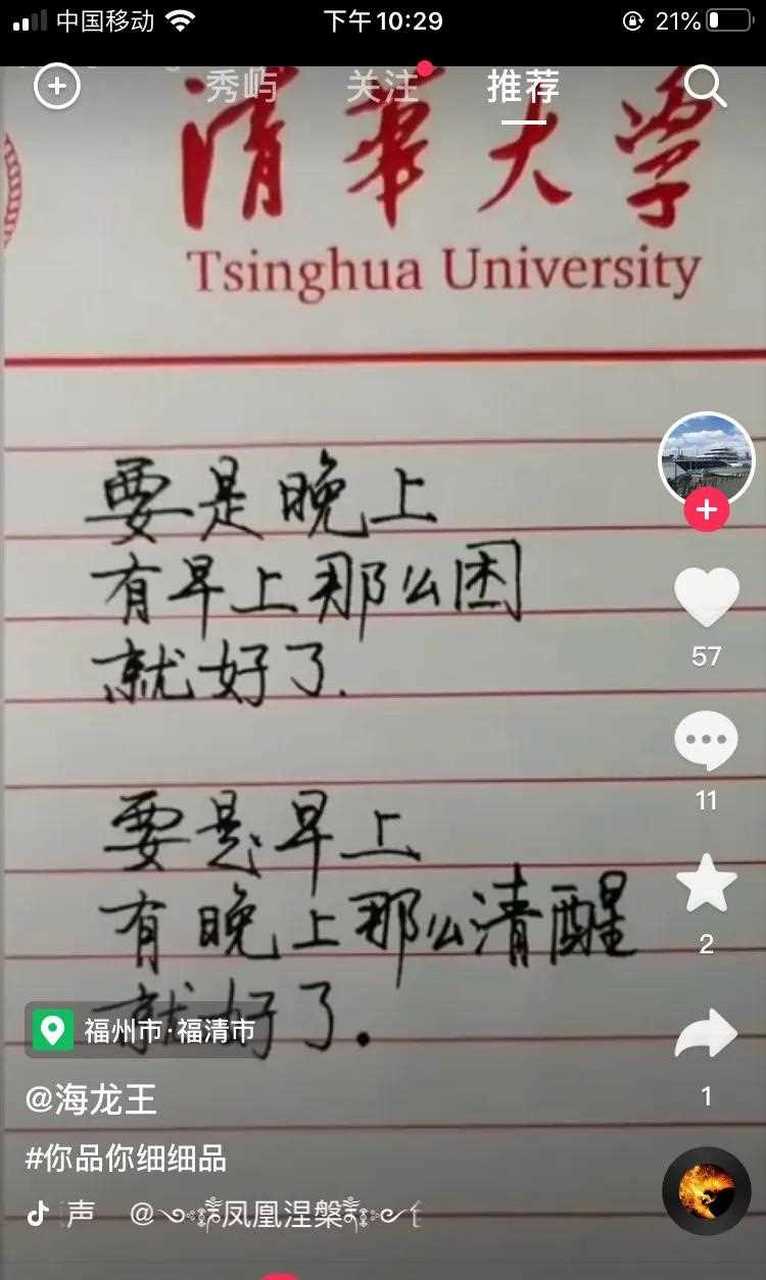 中国移动 下午10:29 21%
秀屿 关注 推荐
清華大学
Tsinghua University
要是晚上
有早上那么困
就好了.
要是早上
有晚上那么清醒
就好了.
57
11
2
1
福州市·福清市
@海龙王
#你品你细细品
声 @凤凰涅槃